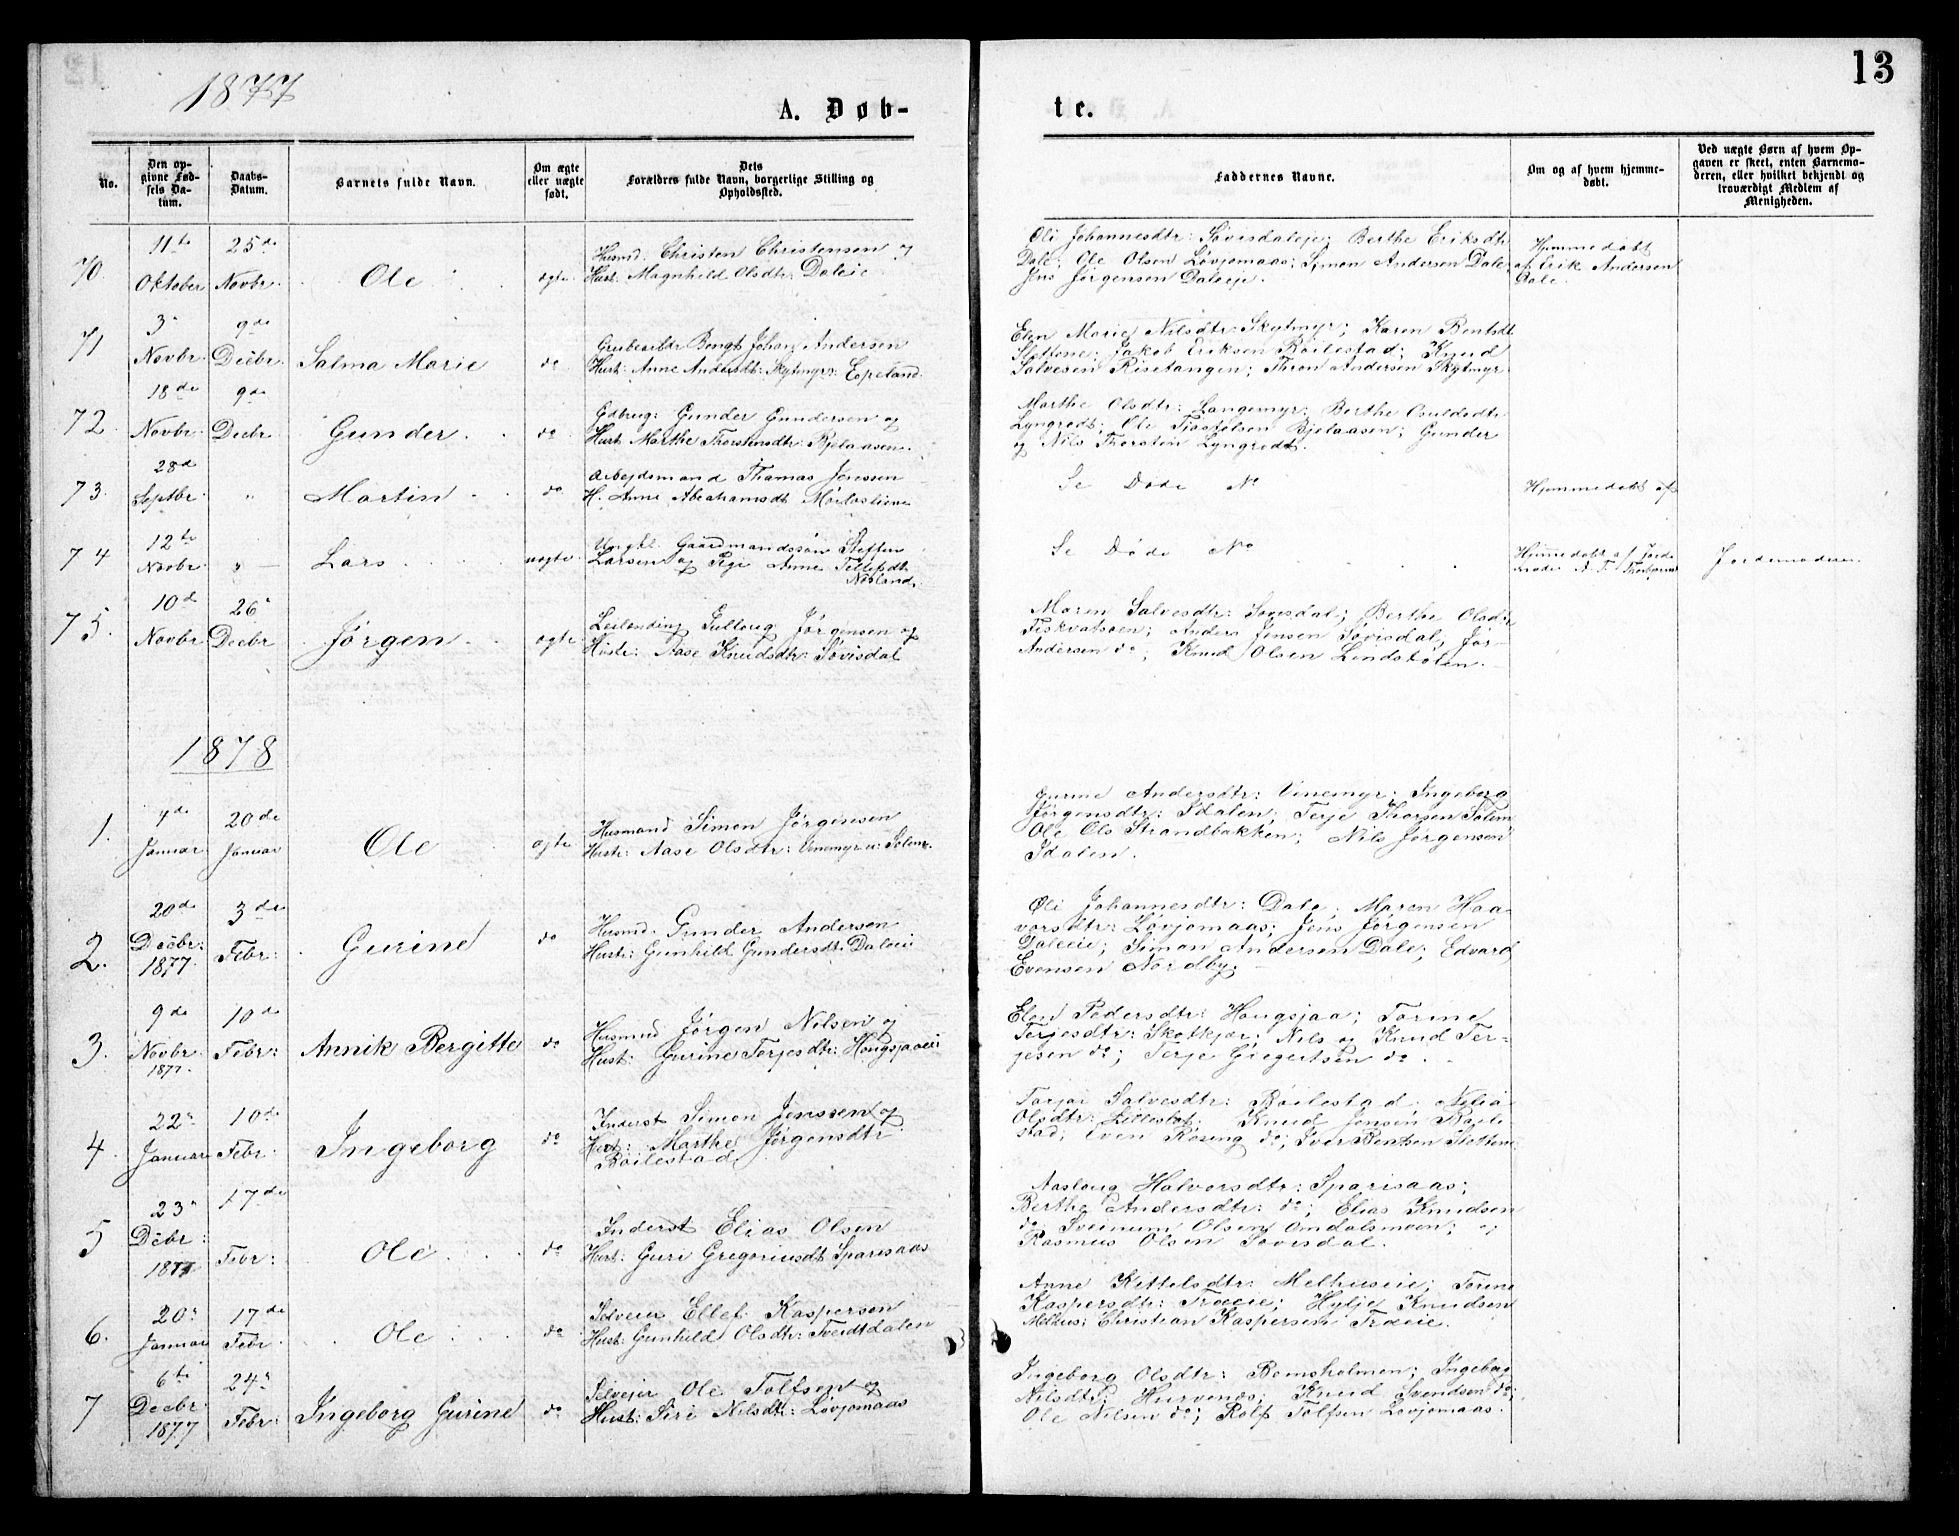 13
1877
A. Døb-
te.
No.
Den op-
givne Fød-
sels Da-
tum.
Daabs-
Datum.
Barnets fulde Navn.
Om ægte
eller uægte
født.
Dets
Forældres fulde Navn, borgerlige Stilling og
Opholdssted.
Faddernes Navne.
Om og af hvem hjemme-
døbt.
Ved uægte Børn af hvem Op-
gaven er skeet, enten Barnemo-
deren, eller hvilket bekjendt og
troværdigt Medlem af
Menigheden.
70.
11te
Oktober
25de
Novbr.
Ole
ægte
Husmd. Christen Christensen og
Hust: Magnhild Olsdtr: Daleie
Oli Johannesdtr: Søvisdaleie; Berthe Eriksdtr
Dale; Ole Olsen Løvjomaas; Simon Andersen Dale;
Jens Jørgensen Daleeje.
Hjemmedøbt
af Erik Andersen
Dale.
71
3
Novbr.
9de
Decbr.
Salma Marie
do
Bengt Johan Andersen
Hust: Anne Andersdt: Skytmyr: Eppeland.
Elen Marie Nilsdtr: Skytmyr; Karen Bentsdt
Slettene; Jakob Eriksen Bøilestad; Knud
Salvesen Risetangen; Thron Andersen Skytmyr
72.
18de
Novbr.
9de
Decbr
Gunder
do
Gdbrug: Gunder Gundersen og
Hust Marthe Thorstensdtr: Bjelaasen.
Marthe Olsdtr: Langemyr; Berthe
Lyngrodt; Ole Bjelaasen; Gunder
og Nils Thorsten Lyngrodt.
73.
28d
Septbr.
"
Martin
do
Arbejdsmand Thomas Jensen
H. Anne Abrahamsdt
Se Døde No
Hjemmedøbt af
74
12te
Novbr.
"
Lars
uægte.
Ungkl. Gaardmandssøn Steffen
Larsen og Pige Anne
Se Døde No
Hjemmedøbt af Jorde-
moder A. T.
Jordemoderen.
75.
10d
Novbr
26
Decbr
Jørgen
ægte
Leilending Jørgensen og
Hustr: Aase Knudsdtr: Søvisdal
Maren Salvesdtr: Søvisdal; Berthe Olsdtr
Fiskvatsoen; Anders Jensen Søvisdal; Jør-
Andersen do; Knud Olsen Lindstølen.
1878
1.
Januar
20de
Januar
Ole
ægte
Husmand Simon Jørgensen
Hustr: Aase Olsdtr: Vinemyr
Gurine Andersdtr: Vinemyr; Ingeborg
Jørgensdtr: Idalen; Terje Thorsen
Ole Ols Strandbakken; Nils Jørgensen
Idalen.
2.
20de
Decbr:
1877.
3de
Febr:
Gurine
do
Husmd. Gunder Andersen
Hustr: Gunhild Gundersdt. Daleie
Oli Johannesdtr: Dale; Maren Haa-
vorsdtr: Løvjomaas; Jens Jørgensen
Daleeie; Simon Andersen Dale; Edvard
Evensen Nordby.
3.
9de
Novbr.
1877.
10de
Febr:
Annik Bergitte
do
Husmd Jørgen Nilsen og
Hust: Gurine Terjesdtr: Hougsjaaeie
Elen Pedersdtr: Hougsjaa; Torine
Terjesdtr: Skotkjær; Nils og Knud Ter-
jesen do; Terje do.
4.
22
Januar
10de
Febr.
Ingeborg
do
Inderst Simon Jenssen og
Hust: Marthe Jørgensdtr
Bøilestad
Torjør Salvesdtr: Bøilestad;
Olsdtr: Lillestøl; Knud Jensen Bøile-
stad; Even Røsing do; Iver Bentsen Slettene
5
23
Dcbr:
1877
17de
Febr:
Ole
do
Inderst Elias Olsen
Hust: Guri Gregoriusdt Sparisaas
Aaslaug Halvorsdtr: Sparisaas;
Berthe Andersdtr: do; Elias Knudsen
do Sveinum Olsen Omdalsmoen; og
Rasmus Olsen Søvisdal.
6.
20
Januar
17de
Febr.
Ole
do
Selveier Ellef Kaspersen
Hust: Gunhild Olsdtr: Tveidtdalen
Anne Kittelsdtr: Melhuseie; Torine
Kaspersdtr: Træeie; Hylje Knudsen
Melhus; Christian Kaspersen Træeie.
7
6te
Decbr
1877
24
Febr:
Ingeborg Gurine
do
Selvejer Ole Tolfsen og
Hust: Siri Nilsdtr: Løvjomaas
Ingeborg Olsdtr: Bomsholmen; Ingeborg
Nilsdtr; Hurvenæs; Knud Svendsen do;
Ole Nilsen do; Rolf Tolfsen Løvjomaas.